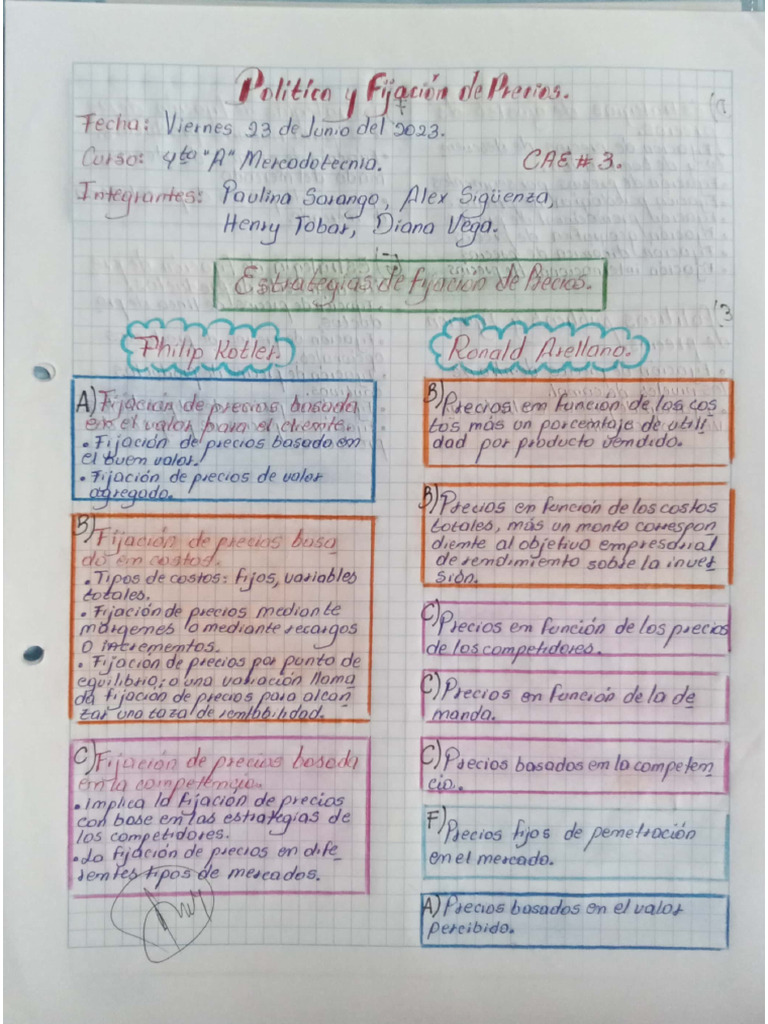 Política y Fijación de Precios.
Fecha: Viernes 23 de Junio del 2023.
Curso: 4to "A" Mercadotecnia.
CAE # 3.
Integrantes: Paulina Sarango, Alex Sigüenza,
Henry Tobar, Diana Vega.
Estrategias de fijación de Precios.
Philip Kotler.
A) Fijación de precios basada
en el valor para el cliente.
• Fijación de precios basado en
el buen valor.
• Fijación de precios de valor
agregado.
B) Fijación de precios basa
do en costos.
• Tipos de costos: fijos, variables
totales.
• Fijación de precios mediante
márgenes o mediante recargos
o incrementos.
• Fijación de precios por punto de
equilibrio; o una variación llama
da fijación de precios para alcan
zar una taza de rentabilidad.
C) Fijación de precios basada
en la competencia.
• Implica la fijación de precios
con base en las estrategias de
los competidores.
• La fijación de precios en dife
rentes tipos de mercados.
Ronald Arellano.
B) Precios en función de los cos
tos más un porcentaje de utili
dad por producto vendido.
B) Precios en función de los costos
totales, más un monto correspon
diente al objetivo empresarial
de rendimiento sobre la inver
sión.
C) Precios en función de los precios
de los competidores.
C) Precios en función de la de
manda.
C) Precios basados en la competen
cia.
F) Precios fijos de penetración
en el mercado.
A) Precios basados en el valor
percibido.